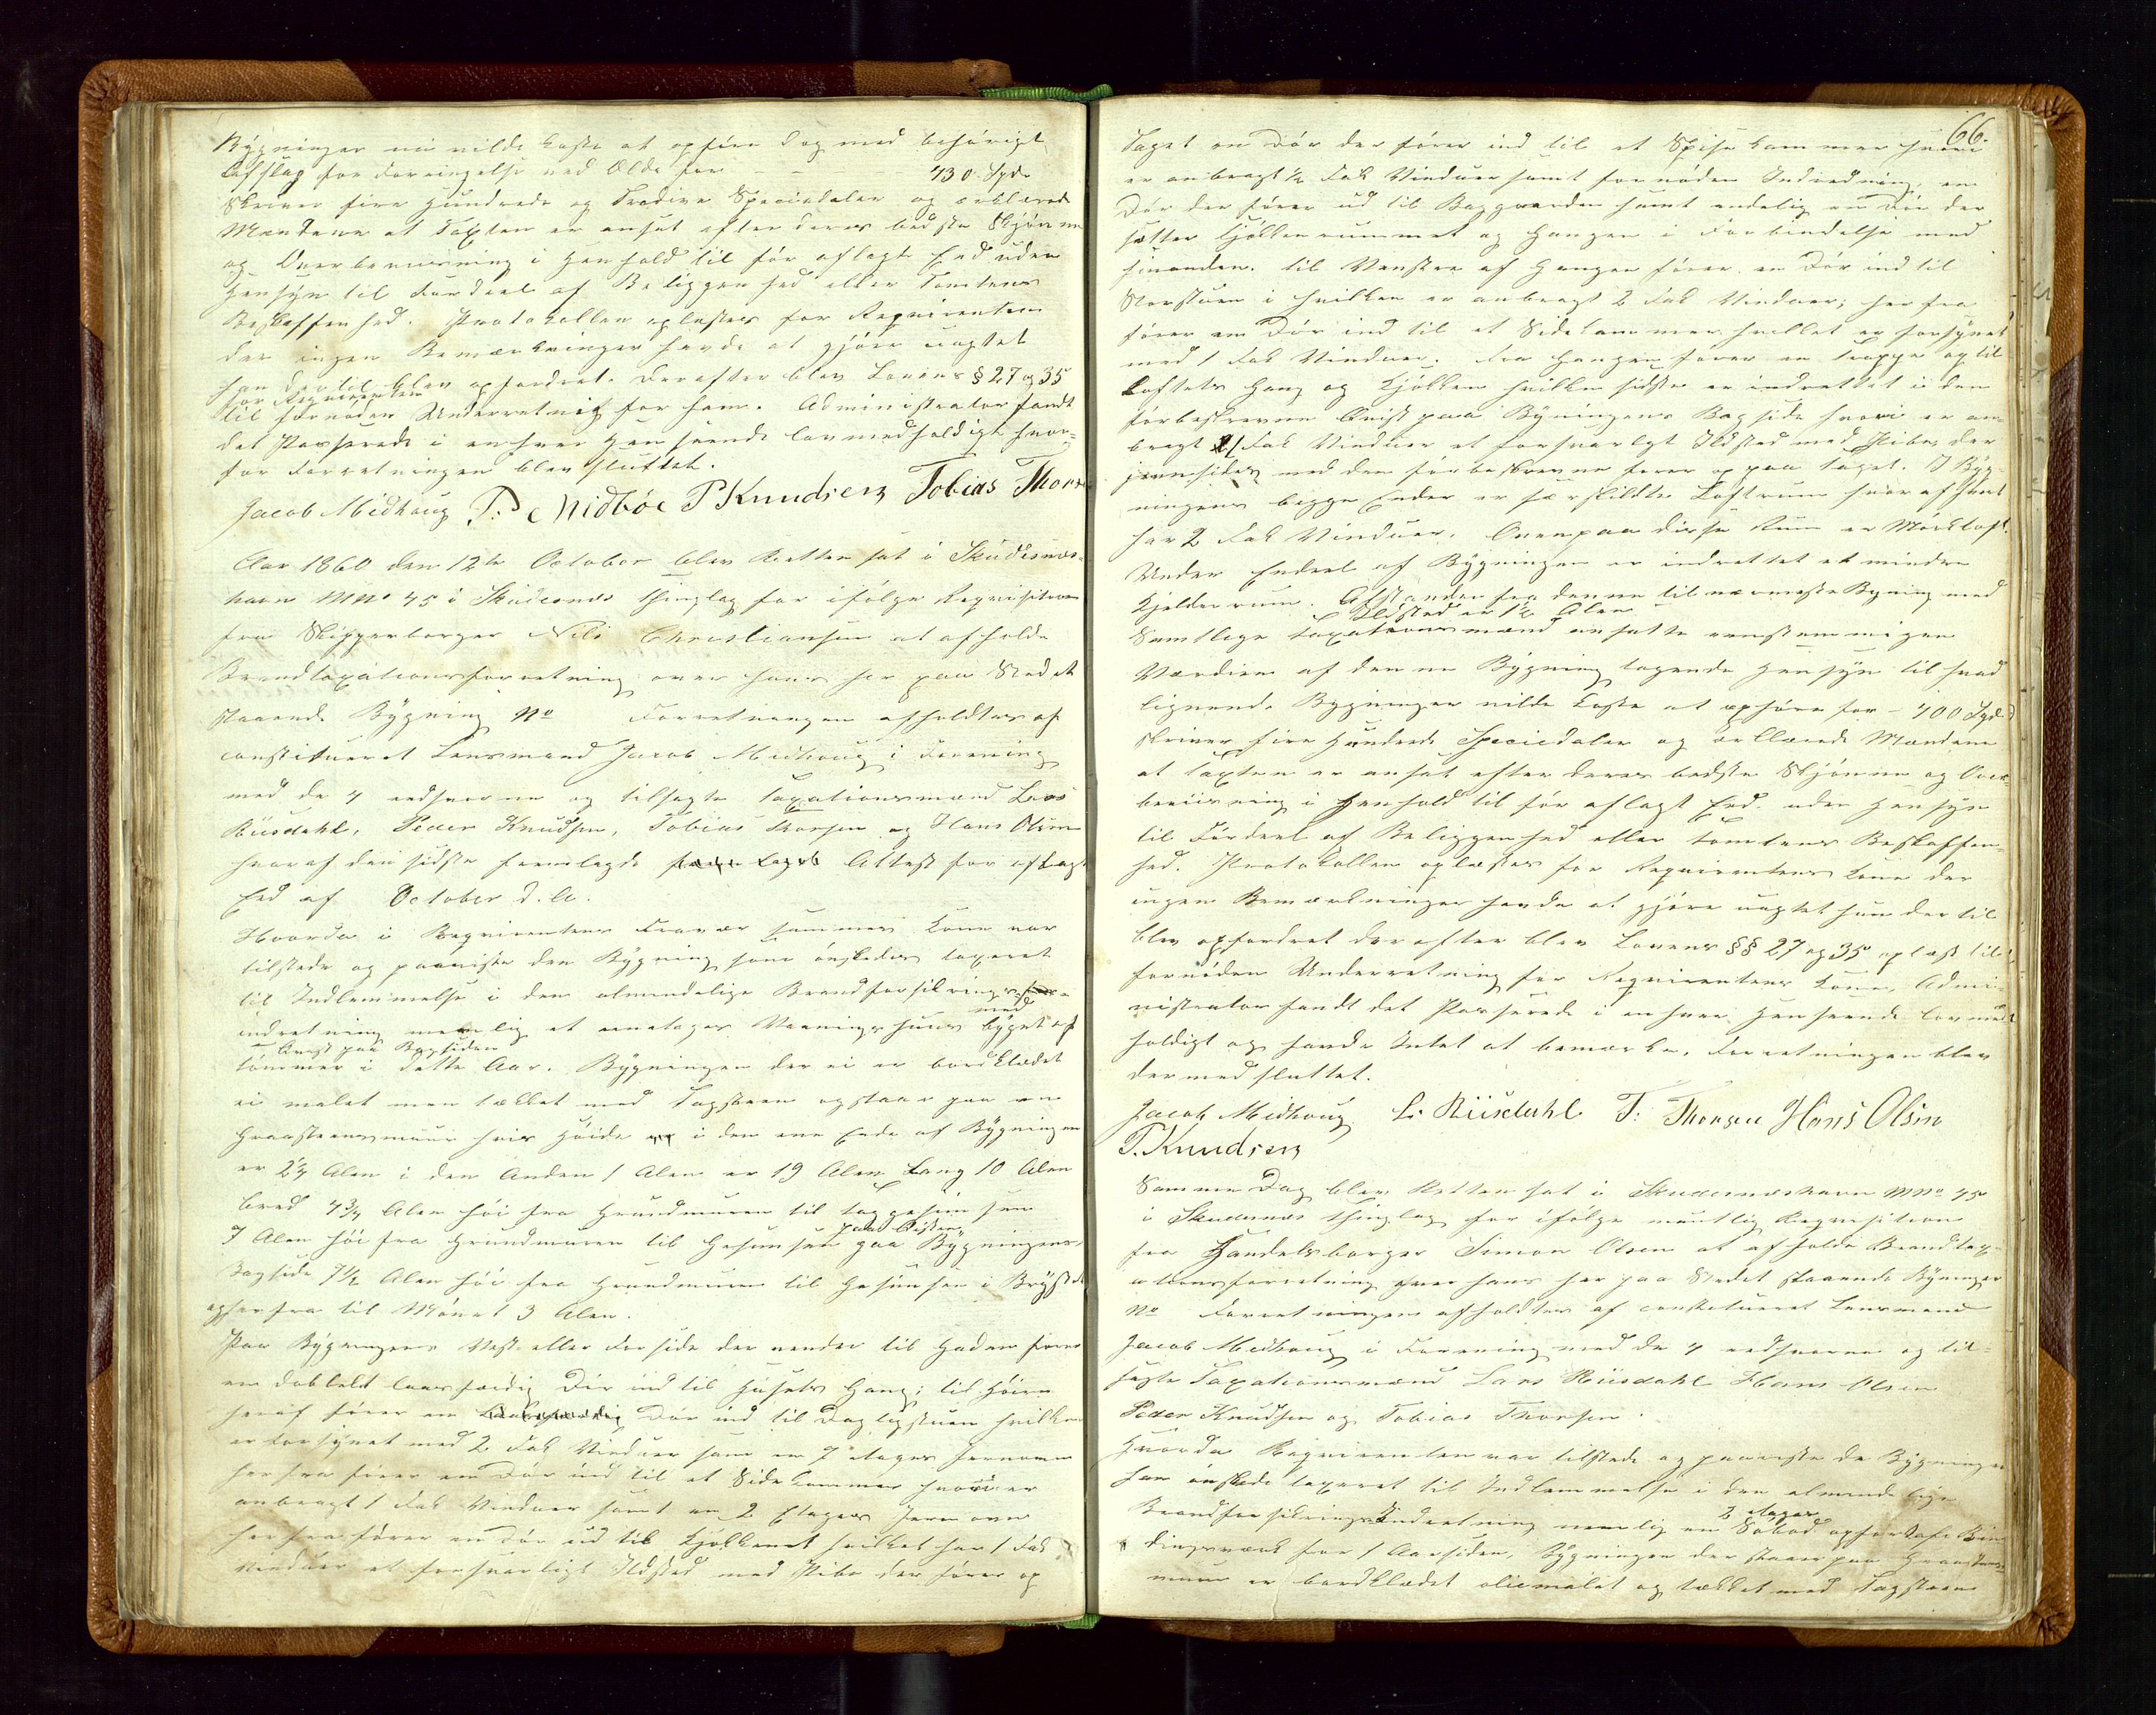 Bygninger nu vilde koste at opføre dog med behørigt
Afslag for Forringelse ved Ælde for - - - 430 Spd.
Skriver fire Hundrede og Tredive Speciedaler og erklærede
Mændene at Taxten er ansat efter deres bedste Skjønne
og Overbeviisning i Henhold til før aflagte Eed uden
Hensyn til Fordeel af Beliggenhed eller Tomtens
Beskaffenhed. Protokollen oplæstes for Reqvirenten
der ingen Bemærkninger havde at gjøre uagtet
han dertil blev opfordret. Derefter blev Lovens § 27 og 35
for Reqvirenten
til fornøden Underretning for ham. Administrator fandt
det Passerede i enhver Henseende lovmedholdigt hvor-
for Forretningen blev sluttet.
Jacob Midhoug P. Midbøe P Knudsen Tobias Thorse
Aar 1860 den 12te October blev Retten sat i Skudesnæs-
havn MNo 45 i Skudesnæs Thinglag for ifølge Reqvisition
fra Skipperborger Nils Christiansen at afholde
Brandtaxationsforretning over hans her paa Stedet
staaende Bygning No Forretningen afholdtes af
constitueret Lensmand Jacob Midhoug i Forening
med de 4 eedsvorne og tilsagte Taxationsmænd Lars
Riisdahl, Peder Knudsen, Tobias Thorsen og Hans Olsen
hvoraf den sidste fremlagde Attest for aflagt
Eed af October d. A.
Hvorda i Reqvirentens Fravær sammes Kone var
tilstede og paaviste den Bygning som ønskedes taxeret
til Indlemmelse i den almindelige Brandforsikrings-
med
indretning nemlig et eenetages Vaaningshuus bygget af
Qvist paa Bagsiden
tømmer i dette Aar. Bygningen der ei er bordklædet
ei malet men tækket med Tagsteen og staar paa en
Graasteensmuur hvis Høide i den ene Ende af Bygningen
er 2¼ Alen i den Anden 1 Alen er 19 Alen Lang 10 Alen
bred 4¾ Alen høi fra Grundmuren til taggesimsen
paa Qvisten
7 Alen høi fra Grundmuren til Gesimsen paa Bygningens
Bagside 7½ Alen høi fra Grundmuren til Gesimsen i Brystet
og herfra til Mønet 3 Alen.
Paa Bygningens Vest eller Forside der vender til Gaden fører
en dobbelt laasfærdig Dør ind til Husets Gang; til Høire
heraf fører en Dør ind til Dagligstuen hvilken
er forsynet med 2 Fak Vinduer samt en 2 etages Jernovn
herfra fører en Dør ind til et Sidekammer hvori er
anbragt 1 Fak Vinduer samt en 2 Etages Jernovn
herfra fører en Dør ud til Kjøkkenet hvilket har 1 Fak
Vinduer et forsvarligt Ildsted med Pibe der fører op
66.
Taget en Dør der fører ind til et Spisekammer hvori
er anbragt ½ Fak Vinduer samt fornøden Indredning, en
Dør der fører ud til Baggaarden samt endelig en Dør der
sætter Kjøkkenrummet og Gangen i Forbindelse med
hinanden. til Venstre af Gangen fører en Dør ind til
Storstuen i hvilken er anbragt 2 Fak Vinduer; herfra
fører en Dør ind til et Sidekammer hvilket er forsynet
med 1 Fak Vinduer. Fra Gangen fører en Trappe op til
Loftets Gang og Kjøkken hvilken sidste er indrettet i den
førbeskrevne Qvist paa Bygningens Bagside hvori er an-
bragt 1 Fak Vinduer et forsvarligt Ildsted med Pibe, der
jevnsides med den førbeskrevne fører op paa Taget. I Byg-
ningens begge Ender er særskildte Loftrum hvoraf hvert
har 2 Fak Vinduer. Ovenpaa disse Rum er Mørkloft.
Under Endeel af Bygningen er indrettet et mindre
Kjelderrum. Afstanden fra denne til nærmeste Bygning med
Ildsted er 1½ Alen
Samtlige Taxationsmænd ansatte eenstemmigen
Værdien af denne Bygning tagende Hensyn til hvad
lignende Bygninger vilde koste at opføre for - 400 Spd
skriver fire Hundrede Speciedaler og erklærede Mændene
at Taxten er ansat efter deres bedste Skjønne og Over-
beviisning i Henhold til før aflagt Eed uden Hensyn
til Fordeel af Beliggenhed eller Tomtens Beskaffen-
hed. Protokollen oplæstes for Reqvirentens Kone der
ingen Bemærkninger havde at gjøre uagtet hun dertil
blev opfordret derefter blev Lovens §§ 27 og 35 oplæst til
fornøden Underretning for Reqvirentens Kone, Admi-
nistrator fandt det Passerede i enhver Henseende lovmed-
holdigt og havde Intet at bemærke. Forretningen blev
dermed sluttet.
Jacob Midhoug L. Riisdahl T. Thorsen Hans Olsen
P. Knudsen
Samme Dag blev Retten sat i Skudesnæshavn MNo 45
i Skudesnæs Thinglag for ifølge mundtlig Reqvisition
fra Handelsborger Simon Olsen at afholde Brandtax-
ationsforretning over hans her paa Stedet staaende Bygninger
No Forretningen afholdtes af constitueret Lensmand
Jacob Midhoug i Forening med de 4 eedsvorne og til-
sagte Taxationsmænd Lars Riisdahl Hans Olsen
Peder Knudsen og Tobias Thorsen.
Hvorda Reqvirenten var tilstede og paaviste de Bygninger
han ønskede taxeret til Indlemmelse i den almindelige
2 etages
Brandforsikrings Indretning nemlig en Søbod opført af Bin-
dingsværk for 1 Aar siden, Bygningen der staaer paa Graasteens-
muur er bordklædet oliemalet og tækket med Tagsteen